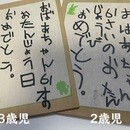 おばあちゃん61才の
おたんじょう日
おめでとう。
おばあちゃん
61さいのおたん
じょうび
おめでとう。
3歳児
2歳児